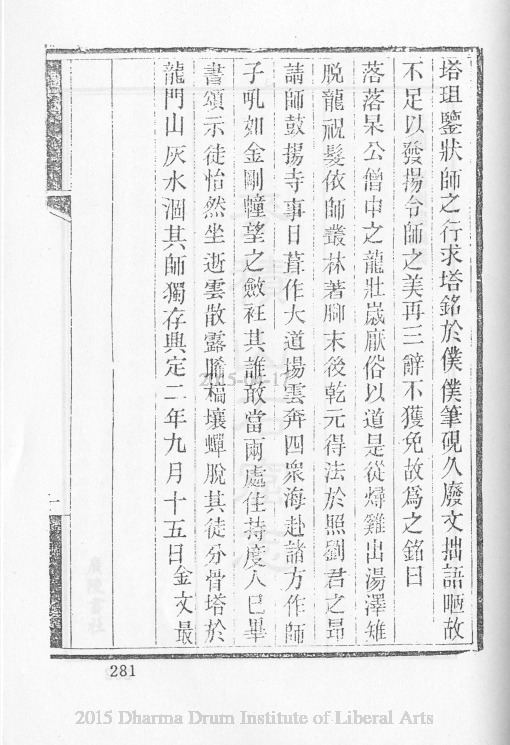 塔珇鑒狀師之行求塔銘於僕僕筆硯久廢文拙語陋故
不足以發揚令師之美再三辭不獲免故為之銘曰
落落杲公僧中之龍壯歲厭俗以道是從燖雞出湯澤雉
脫籠祝髮依師叢林著腳末後乾元得法於照劉君之昻
請師鼓揚寺事日葺作大道場雲奔四眾海赴諸方作師
子吼如金剛幢望之斂衽其誰敢當兩處住持度人已畢
書頌示徒怡然坐逝雲散露騰槁壤蟬脫其徒分骨塔於
龍門山灰水涸其師獨存興定二年九月十五日金文最
281
2015 Dharma Drum Institute of Liberal Arts